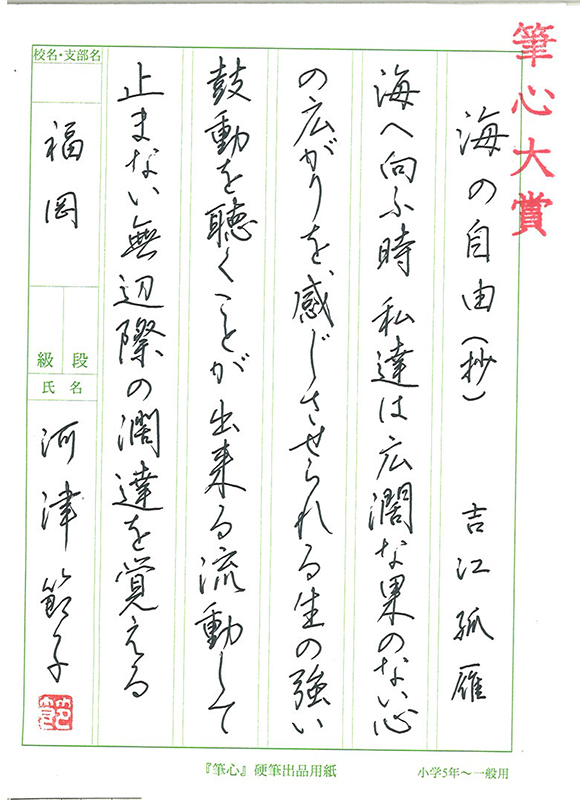 筆心大賞
海の自由(抄) 吉江孤雁
海へ向ふ時 私達は広闊な果のない心
の広がりを、感じさせられる生の強い
鼓動を聴くことが出来る流動して
止まない無辺際の濶達を覚える
校名・支部名
福岡
段
級
氏名
河津節子
『筆心』硬筆出品用紙
小学5年〜一般用